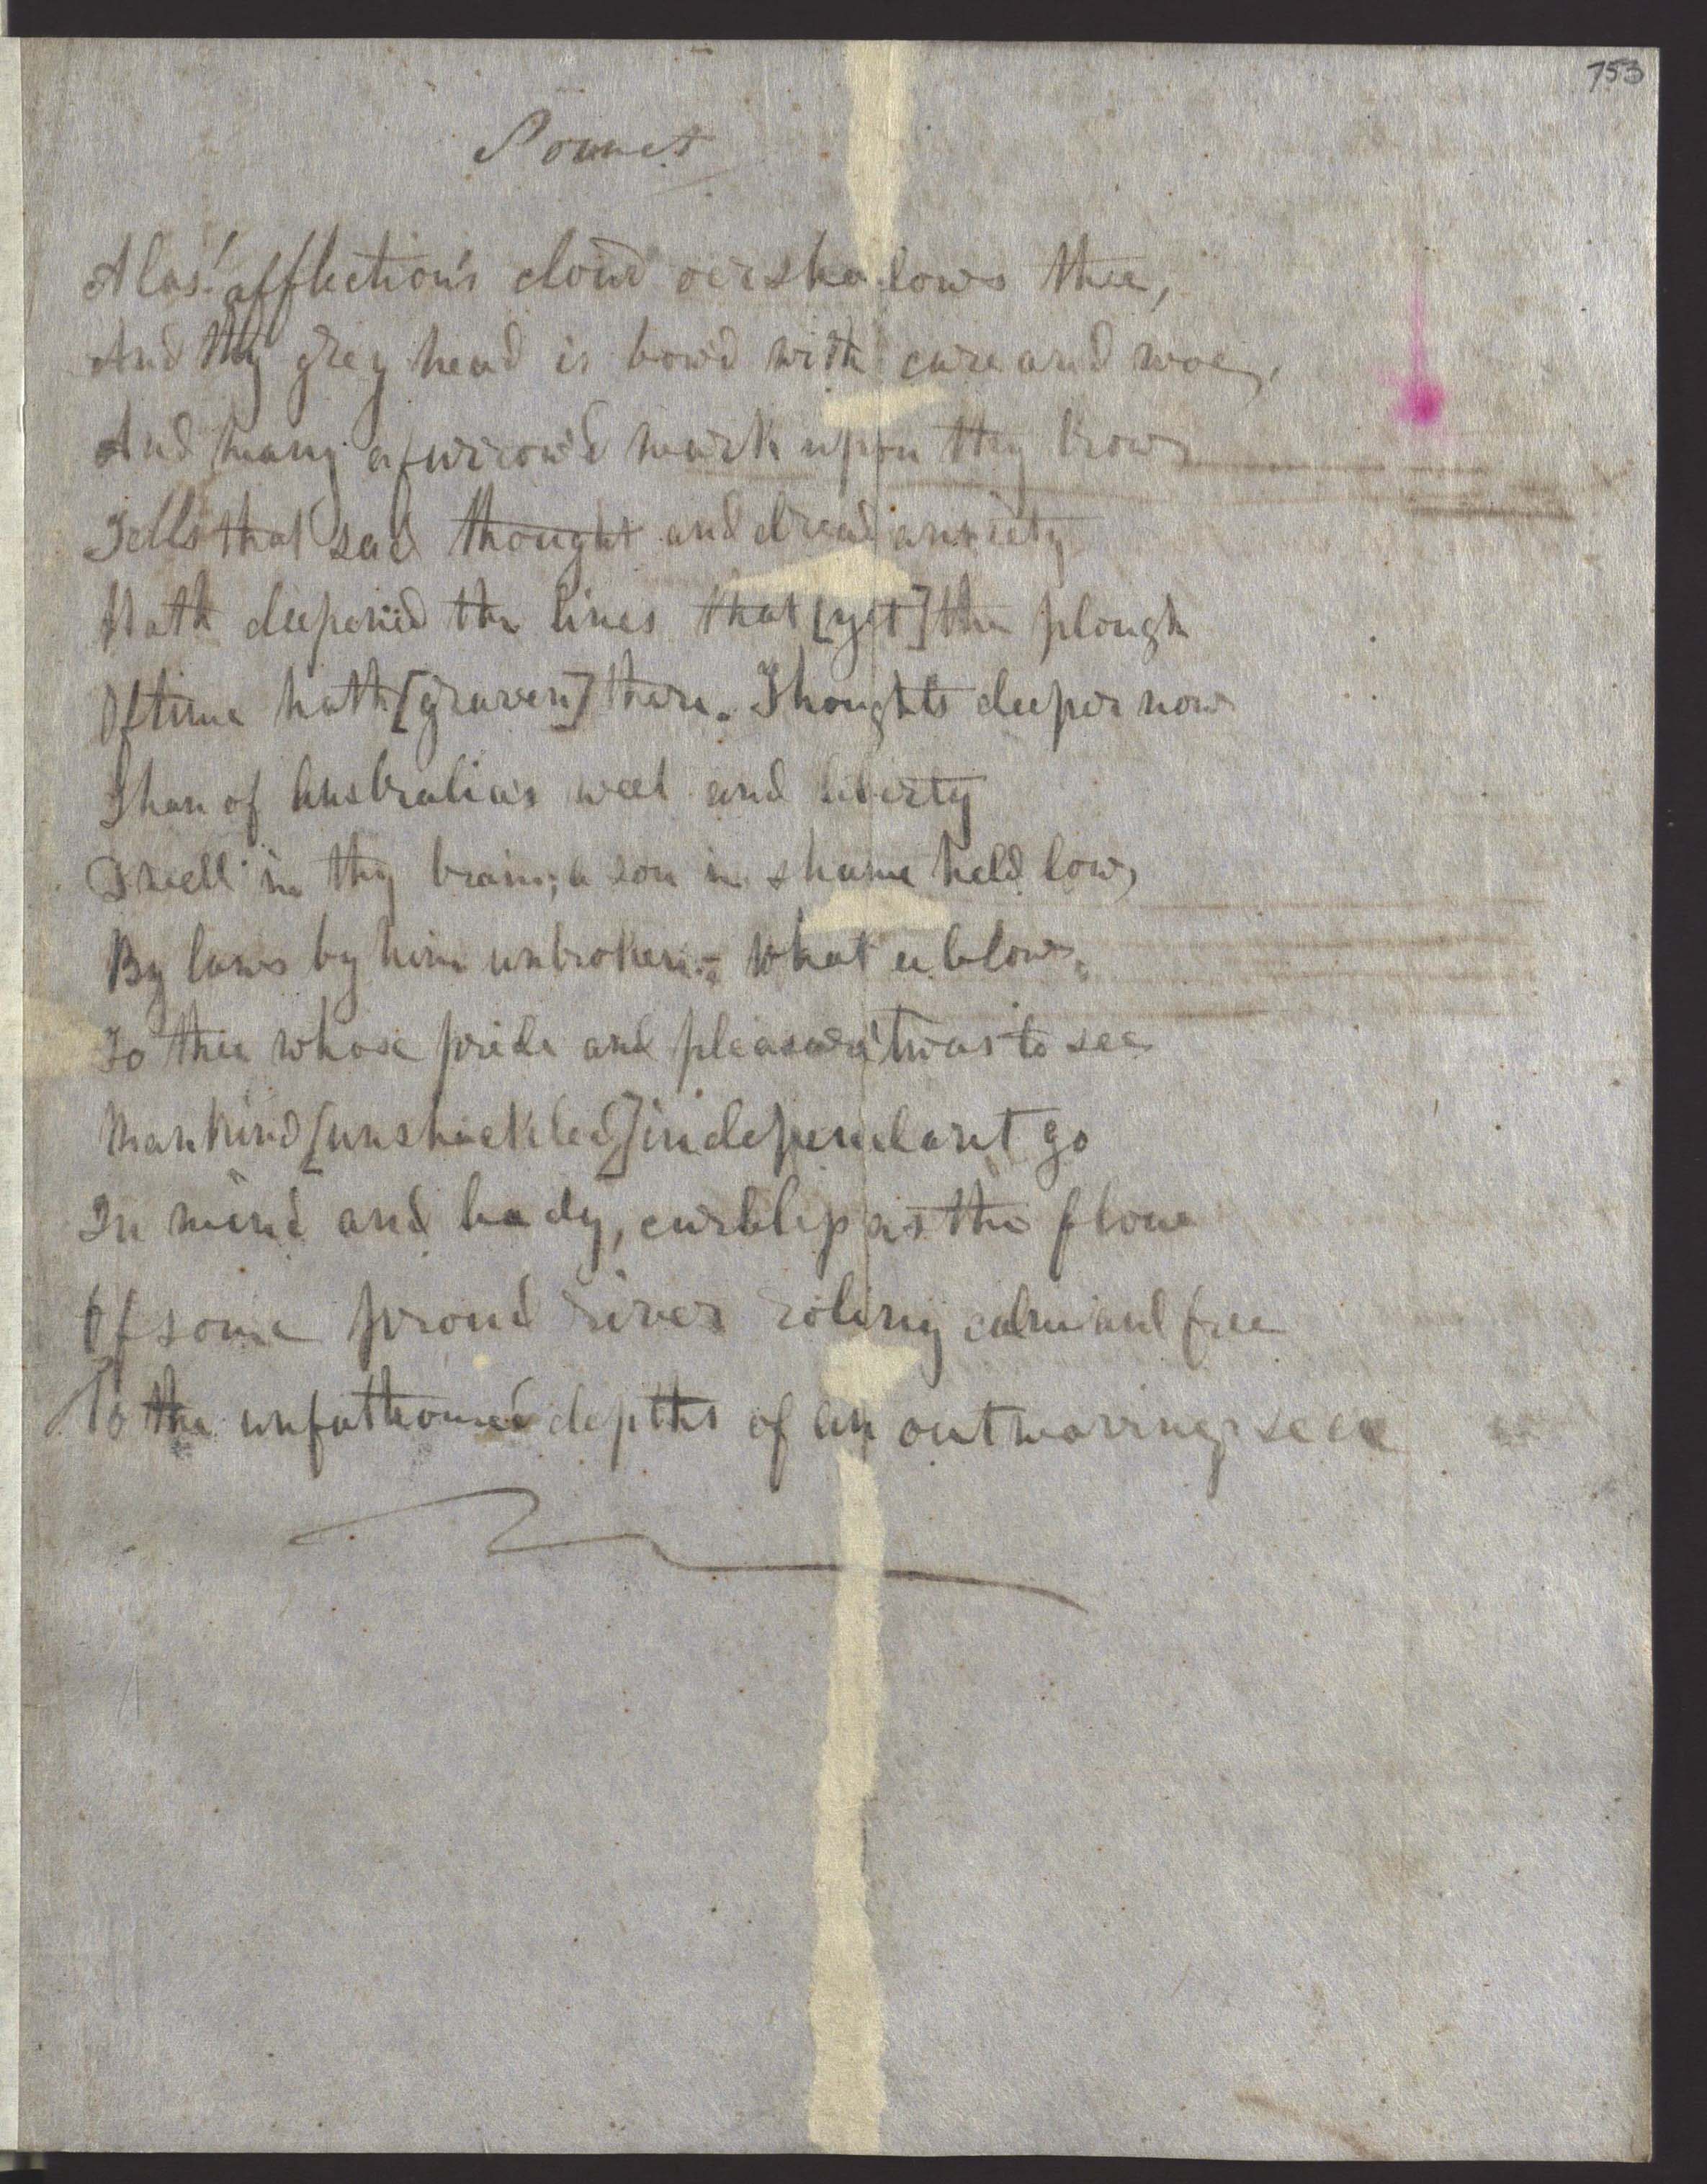 753
Sonnet
Alas! afflection's cloud oershadows thee,
And thy grey head is bow'd with care and woe,
And many a furrow'd mark upon thy brow
Tells that sad thought and dread anxiety
Hath deepen'd the lines that [yet] the plough
Of time hath [graven] there. Thoughts deeper now
Than of Australia's weel and liberty
Dwell in thy brain; a son in shame held low,
By laws by him unbroken:- What a blow,
To thee whose pride and pleasure 'twas to see
Mankind [unshackled] independant go
In mind and body, as the flow
Of some proud river roling calm and free
To the unfathomed depths of an sea